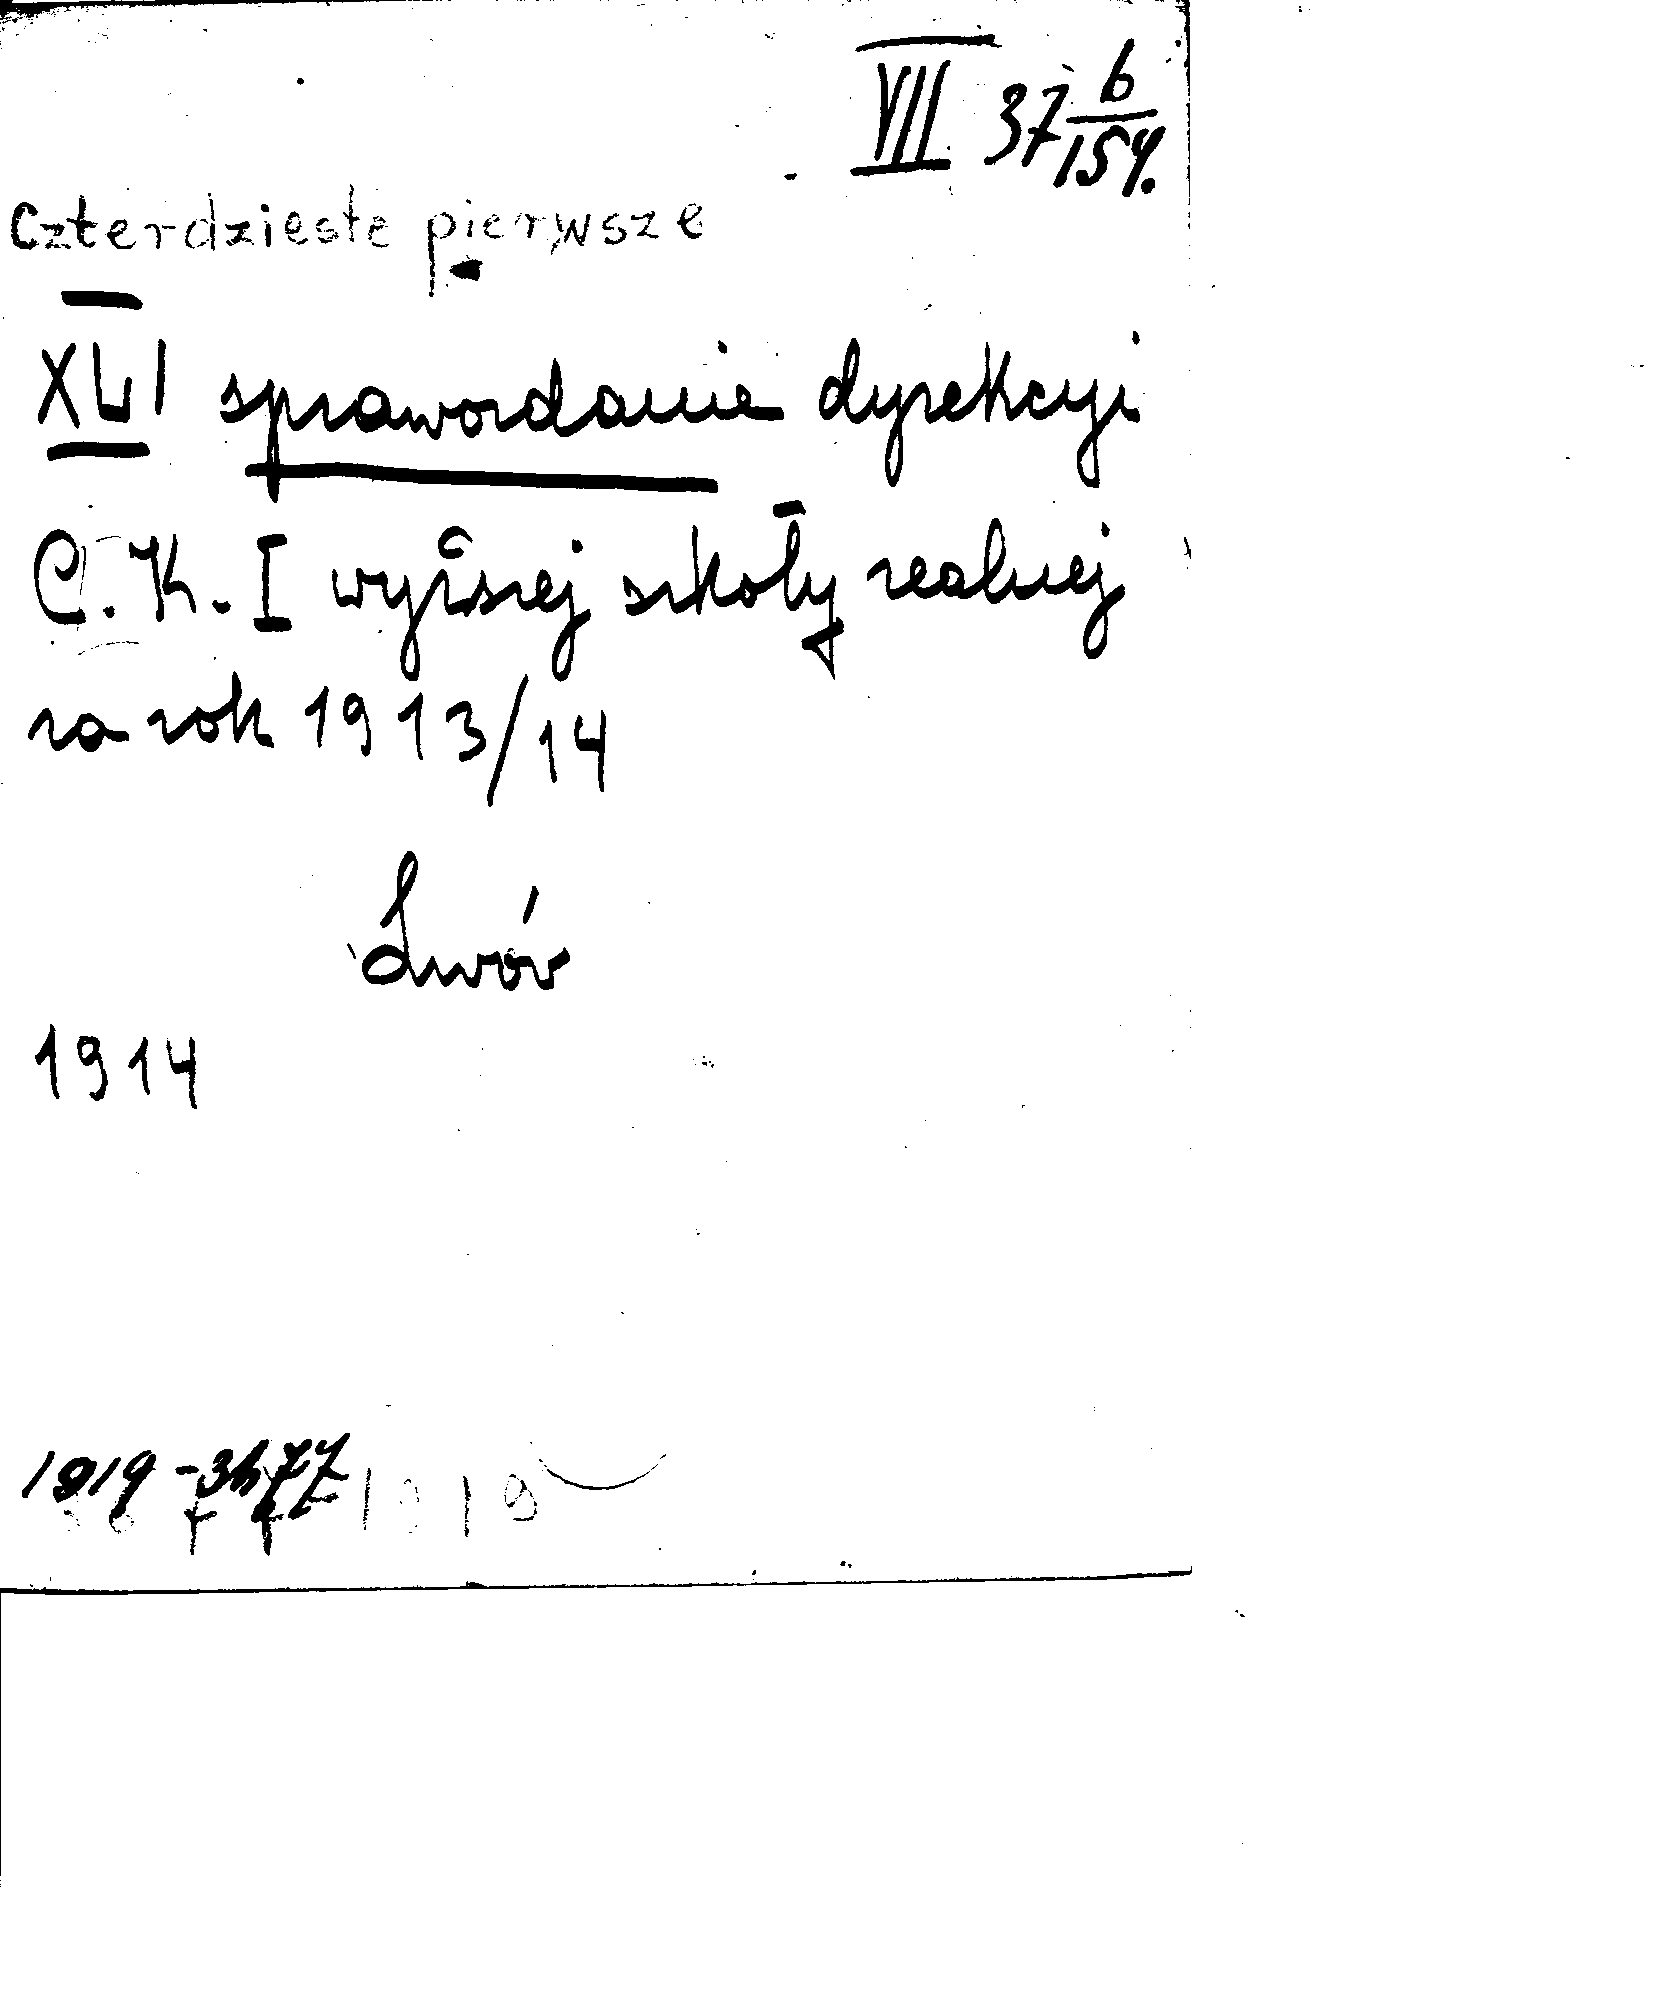 VII 37 6/154.
Czterdzieste pierwsze
XLI sprawozdanie dyrekcyi
C. K. I wyższej szkoły realnej
za rok 1913/14
Lwów
1914
1919
1919